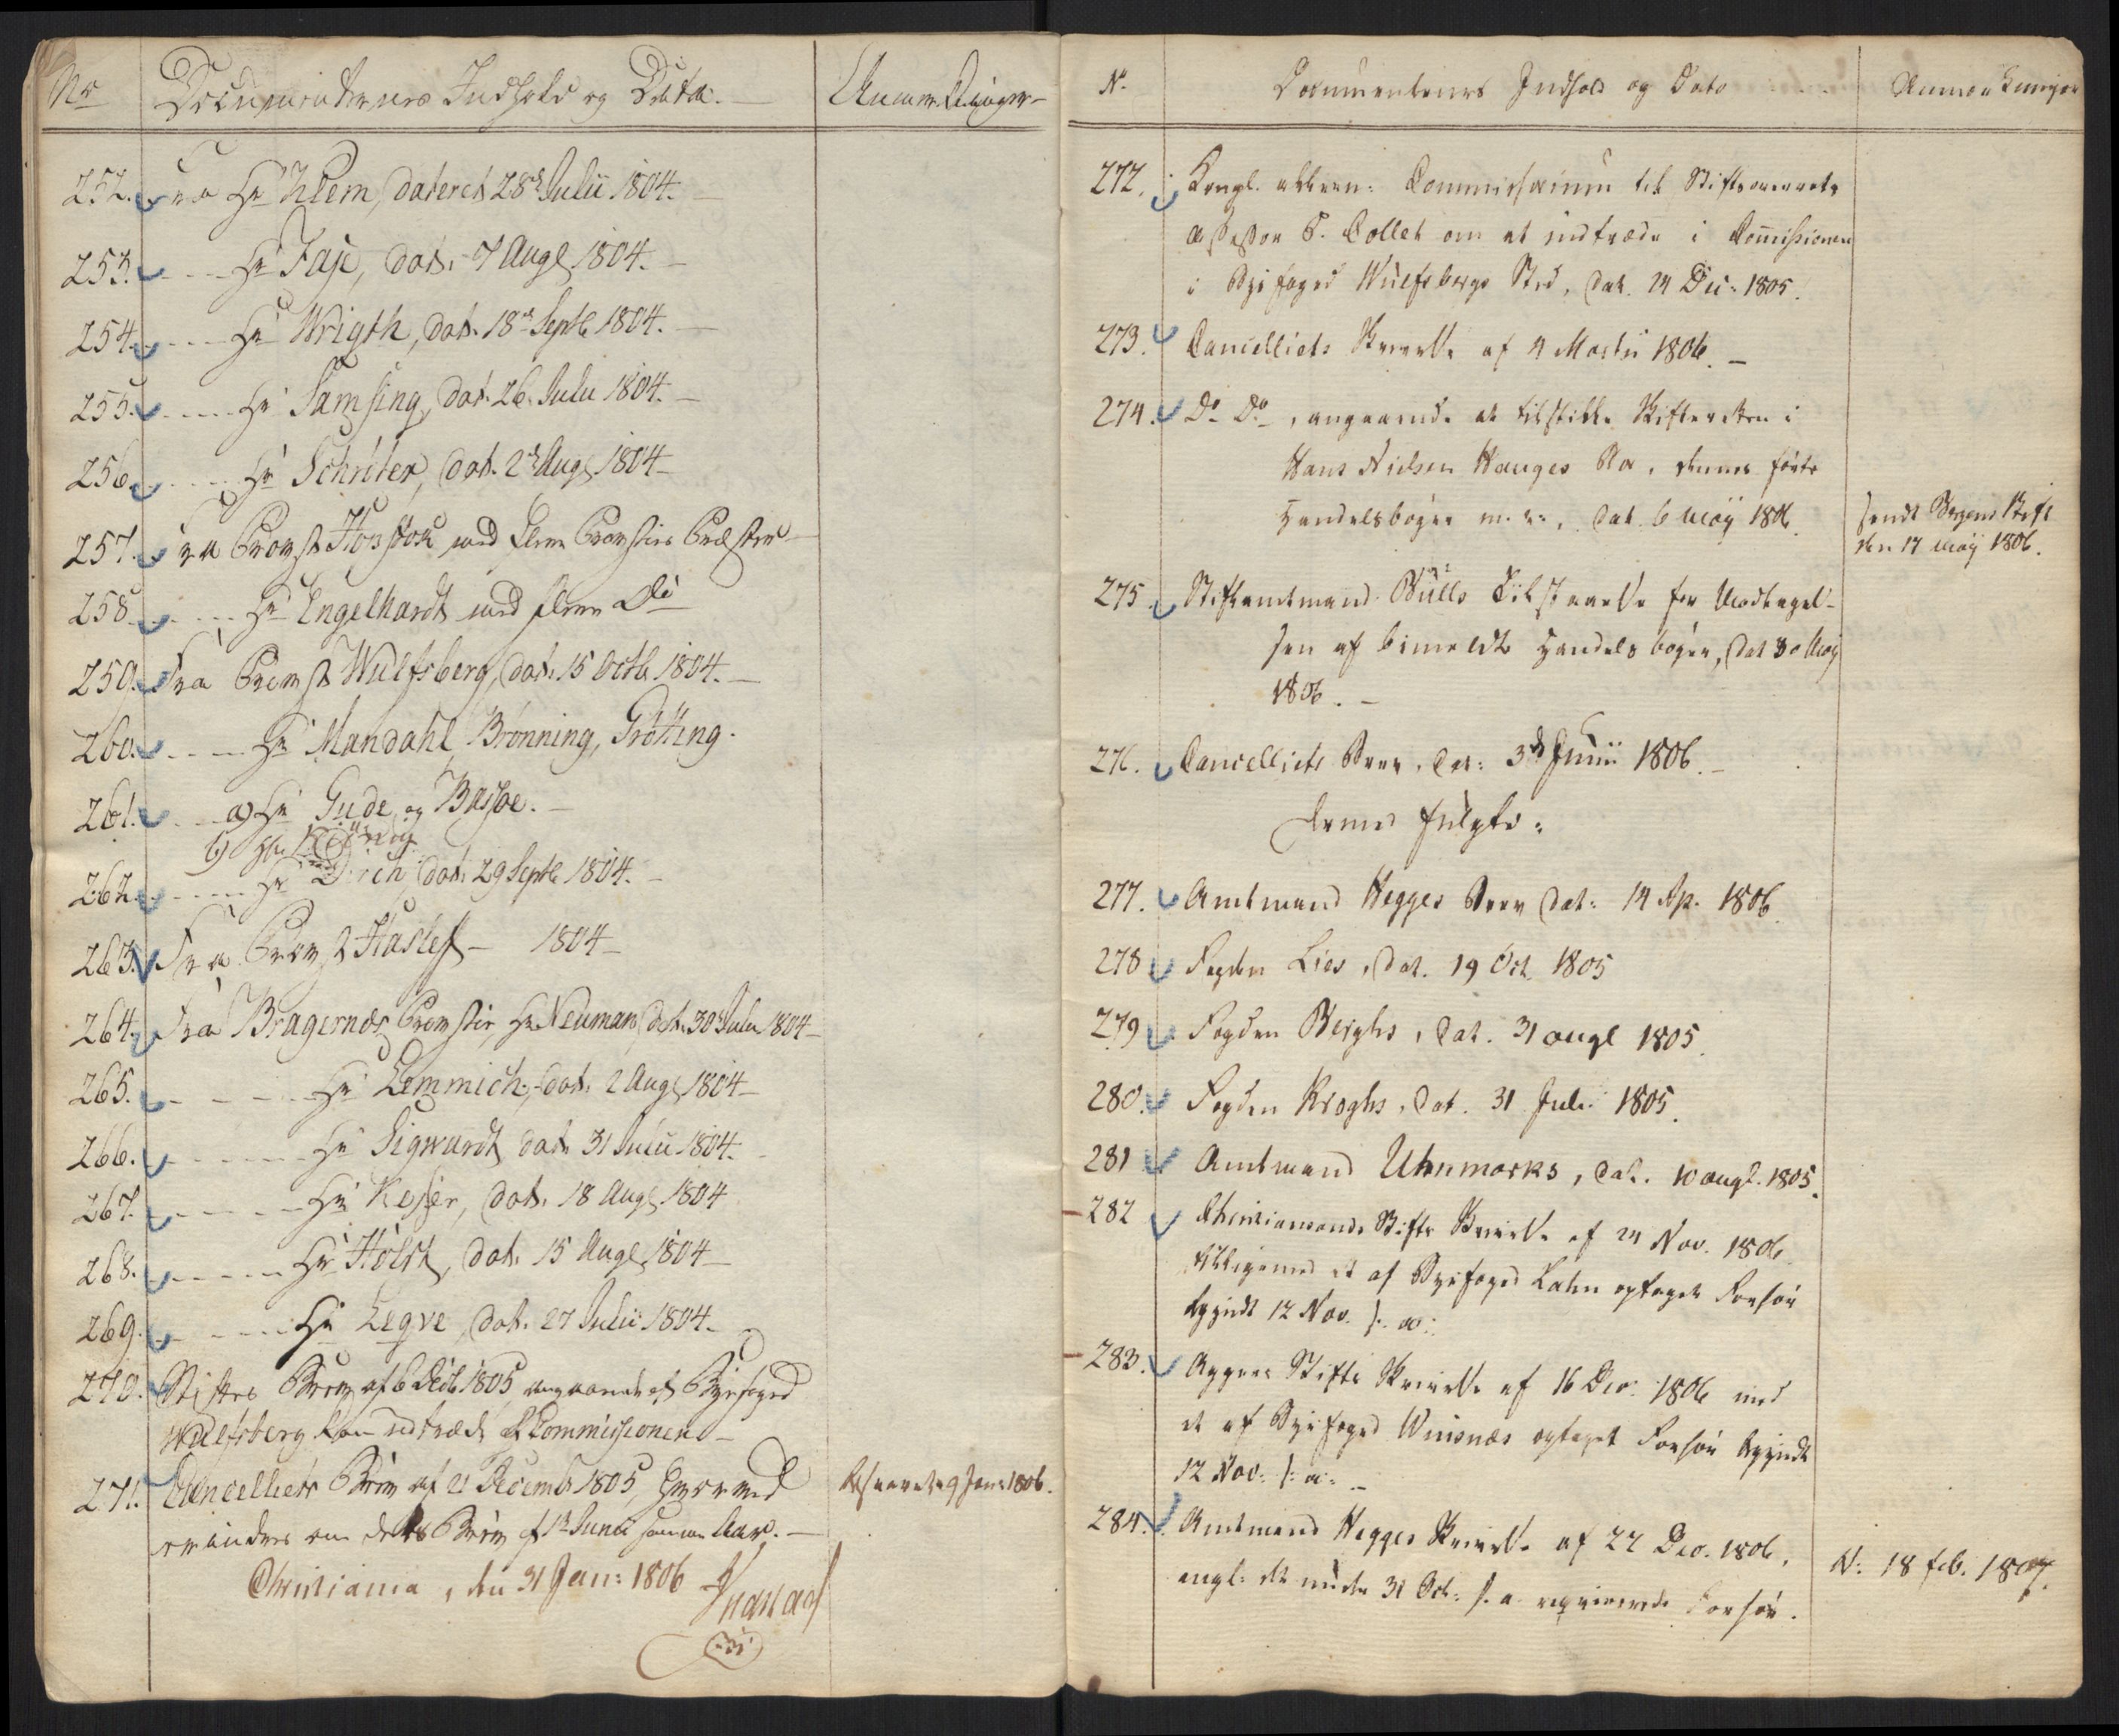 No
Documenternes Indhold og Data.
Anmærkninger
252. Fra Hr Klem, dateret 28de Julii 1804.
253. Hr Faye, dat. 7 Augt 1804.
254. Hr Wrigth, dat. 18de Septb 1804.
255. Hr Samsing, dat. 26. Julii 1804.
256. Hr Schröter, dat. 2de Augt 1804
257. Fra Provst med flere Provstiets Præster
258. Hr Engelhardt med flere Do
259. Fra Provst Wulfsberg, dat. 15 Octb 1804.
260. Hr Mandahl, Brønning, Grøtting.
261. a) Hr Gude og Bassøe.
b) Hr
262. Hr dat. 29 Septb 1804.
263. Fra Provst Haslef 1804
264. Fra Bragernæs Provstie, Hr Neuman, dat. 30 Julii 1804
265. Hr Lemmich, dat. 2 Augt 1804
266. Hr Sigwardt dat. 31 Julii 1804.
267. Hr Keyser, dat. 18 Augt 1804
268. Hr Holst, dat. 15 Augt 1804
269. Hr Legve, dat. 27 Julii 1804.
270. Stiftets Brev af 6 Decb 1805, angaaende at Byefoged
Wulfsberg kan udtræde af Commissionen
271. Cancelliets Brev af 21 Decemb 1805, hvorved
erindres om dets Brev af 1 Junii samme Aar.
Besvaret 9 Jan: 1806.
Christiania, den 31 Jan: 1806
N.
Documenternes Indhold og Dato
Anmærkninger
272. Kongl. allern: Commissorium til Stiftsoverrets
Assessor C. Collet om at indtræde i Commissionen
i Byefoged Wulfsbergs Sted, dat. 24 Dec: 1805.
273. Cancelliets Skrivelse af 4 Martii 1806.
274. Do Do, angaaende at tilstille Skifteretten i
Hans Nielsen Hauges Bo, dennes førte
Handelsbøger m. v., dat. 6 May 1806.
sendt Bergens Stift
den 17 May 1806.
275. Stiftamtmand Bulls Tilstaaelse for Modtagel-
sen af bemeldte Handelsbøger, dat 30 May
1806.
276. Cancelliets Brev, dat: 3de Junii 1806.
hermed fulgte:
277. Amtmand Hegges Brev dat: 14 Ap. 1806.
278. Fogden Lies, dat. 19 Oct. 1805
279. Fogden Berghs, dat. 31 augt 1805.
280. Fogden Kroghs, dat. 31 Juli 1805.
281 Amtmand Utnmarks, dat. 10 augt. 1805.
282 Christiansands Stifts Skrivelse af 24 Nov. 1806.
tilligemed et af Byefoged Lahn optaget Forhør
begyndt 12 Nov. s. a:
283. Aggers Stifts Skrivelse af 16 Dec: 1806 med
et af Byefoged Wiisnæs optaget Forhør begyndt
12 Nov: s: a:
284. Amtmand Hegges Skrivelse af 22 Dec. 1806,
angl: det under 31 Oct: s. a. reqvirerede Forhør.
N: 18 feb. 1807.